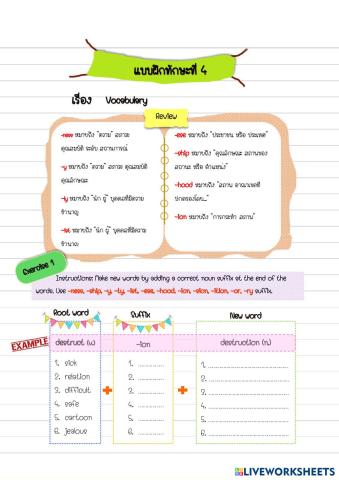 แบบฝึกทักษะที่ 4
เรื่อง Vocabulary
Review
-ness หมายถึง "ความ" สภาวะ
คุณสมบัติ ระดับ สถานการณ์
-y หมายถึง "ความ" สภาวะ คุณสมบัติ
คุณลักษณะ
-y หมายถึง "นัก ผู้" บุคคลที่มีความ
ชำนาญ
-ist หมายถึง "นัก ผู้" บุคคลที่มีความ
ชำนาญ
-ese หมายถึง "ประชาชน หรือ ประเทศ"
-ship หมายถึง "คุณลักษณะ สถานะของ
สถานะ หรือ ตำแหน่ง"
-hood หมายถึง "สถาน อาณาเขตที่
ปกครองโดย..."
-ion หมายถึง "การกระทำ สถานะ"
Exercise 1
Instructions: Make new words by adding a correct noun suffix at the end of the
words. Use -ness, -ship, -y, -ty, -ist, -ese, -hood, -ion, -sion, -ition, -or, -ry suffix.
Root word Suffix New word
EXAMPLE destruct (v.) -ion destruction (n.)
1. sick + 1. ............... + 1. ...............
2. relation 2. ............... 2. ...............
3. difficult 3. ............... 3. ...............
4. safe 4. ............... 4. ...............
5. cartoon 5. ............... 5. ...............
6. jealous 6. ............... 6. ...............
LIVEWORKSHEETS